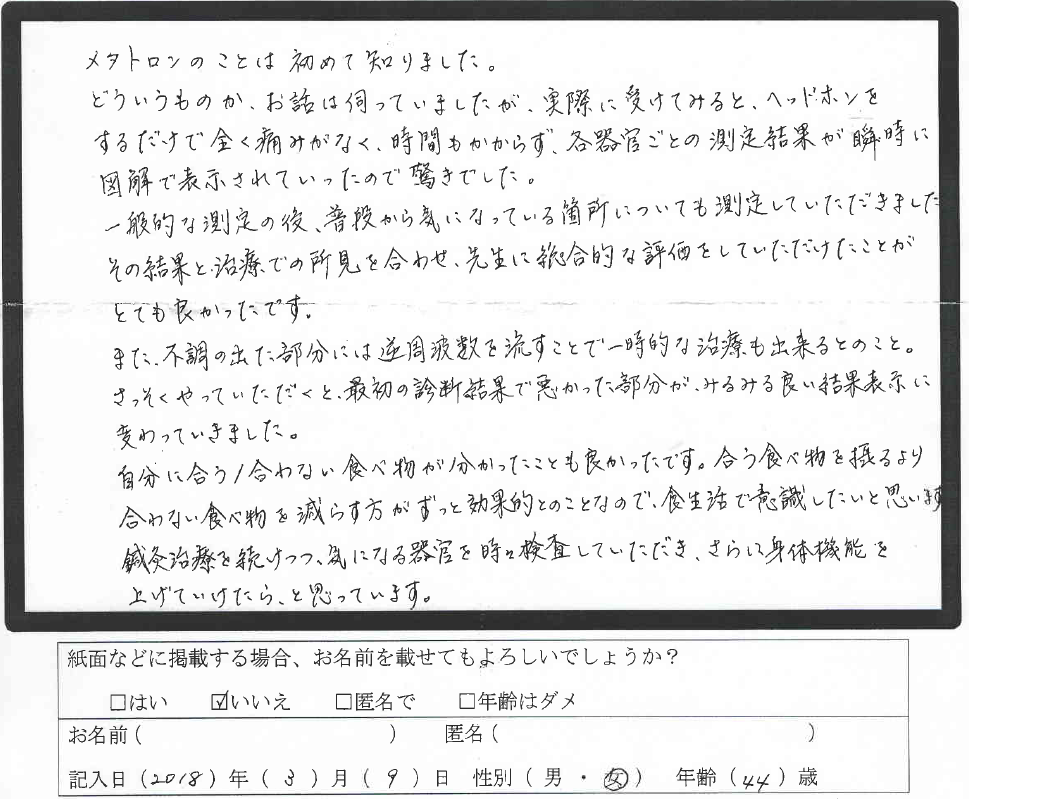 メタトロンのことは初めて知りました。
どういうものか、お話は伺っていましたが、実際に受けてみると、ヘッドホンを
するだけで全く痛みがなく、時間もかからず、各器官ごとの測定結果が瞬時に
図解で表示されていったので驚きでした。
一般的な測定の後、普段から気になっている箇所についても測定していただきました
その結果と治療での所見を合わせ、先生に総合的な評価をしていただけたことが
とても良かったです。
また、不調の出た部分には逆周波数を流すことで一時的な治療も出来るとのこと。
さっそくやっていただくと、最初の診断結果で悪かった部分が、みるみる良い結果表示に
変わっていきました。
自分に合う/合わない食べ物が分かったことも良かったです。合う食べ物を摂るより
合わない食べ物を減らす方がずっと効果的とのことなので、食生活で意識したいと思います
鍼灸治療を続けつつ、気になる器官を時々検査していただき、さらに身体機能を
上げていけたら、と思っています。
紙面などに掲載する場合、お名前を載せてもよろしいでしょうか？
□はい ☑いいえ □匿名で □年齢はダメ
お名前（ ） 匿名（ ）
記入日（2018）年（3）月（9）日 性別（男・女） 年齢（44）歳